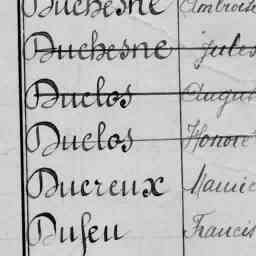 Duchesne Ambroise
Duchesne Jules
Duclos August
Duclos Honoré
Ducreux Mauric
Dufeu Francis